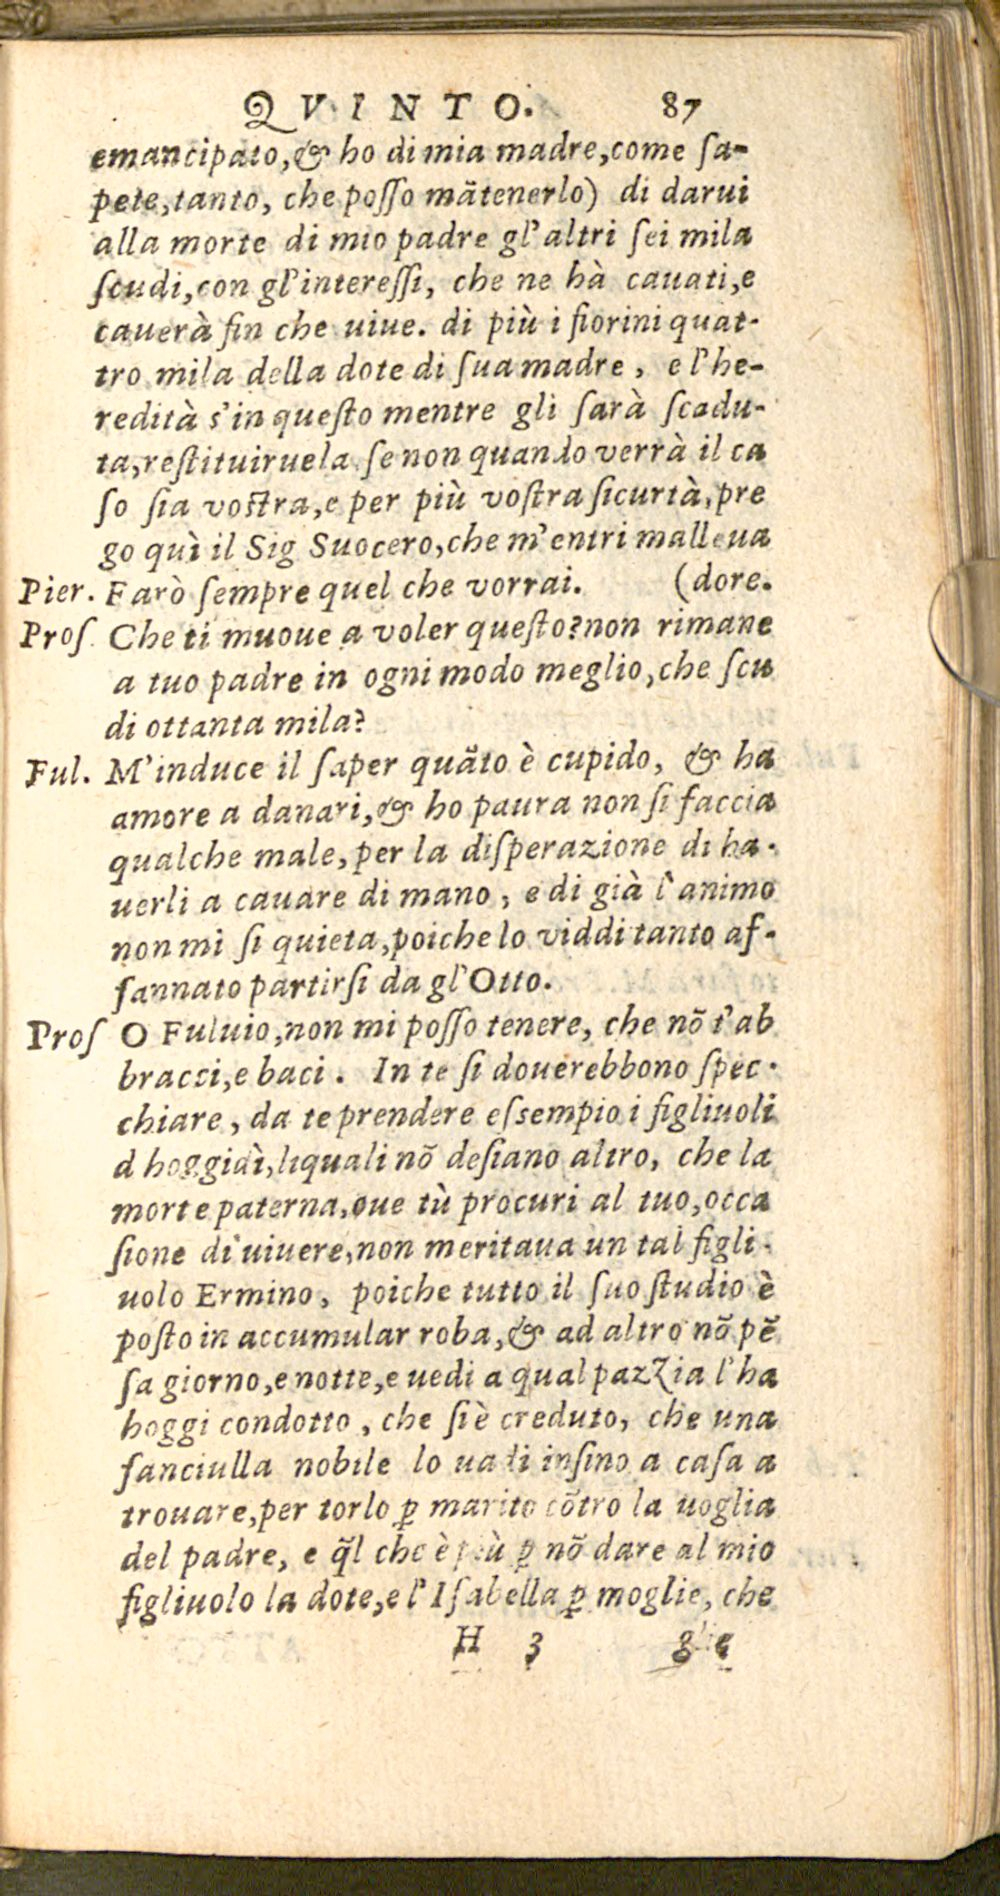 QVINTO. 87
emancipato, & ho di mia madre, come ſa-
pete, tanto, che poſſo mãtenerlo) di darui
alla morte di mio padre gl'altri ſei mila
ſcudi, con gl'intereſſi, che ne hà cauati, e
cauerà fin che uiue. di più i fiorini quat-
tro mila della dote di ſua madre, e l'he-
redità s'in queſto mentre gli ſarà ſcadu-
ta, reſtituiruela. ſe non quando verrà il ca
ſo ſia voſtra, e per più voſtra ſicurtà, pre
go quì il Sig Suocero, che m'entri malleua
Pier. Farò ſempre quel che vorrai. (dore.
Proſ. Che ti muoue a voler queſto? non rimane
a tuo padre in ogni modo meglio, che ſcu
di ottanta mila?
Ful. M'induce il ſaper quãto è cupido, & ha
amore a danari, & ho paura non ſi faccia
qualche male, per la diſperazione di ha-
uerli a cauare di mano, e di già l'animo
non mi ſi quieta, poiche lo viddi tanto af-
fannato partirſi da gl'Otto.
Proſ O Fuluio, non mi poſſo tenere, che nõ t'ab
bracci, e baci. In te ſi douerebbono ſpec-
chiare, da te prendere eſsempio i figliuoli
d hoggidì, liquali nõ deſiano altro, che la
morte paterna, oue tù procuri al tuo, occa
ſione di uiuere, non meritaua un tal figli-
uolo Ermino, poiche tutto il ſuo ſtudio è
poſto in accumular roba, & ad altro nõ pẽ
ſa giorno, e notte, e uedi a qual pazzia l'ha
hoggi condotto, che ſi è creduto, che una
fanciulla nobile lo uadi inſino a caſa a
trouare, per torlo ꝑ marito cõtro la uoglia
del padre, e q̃l che è più ꝑ nõ dare al mio
figliuolo la dote, e l'Iſabella ꝑ moglie, che
H 3 glie